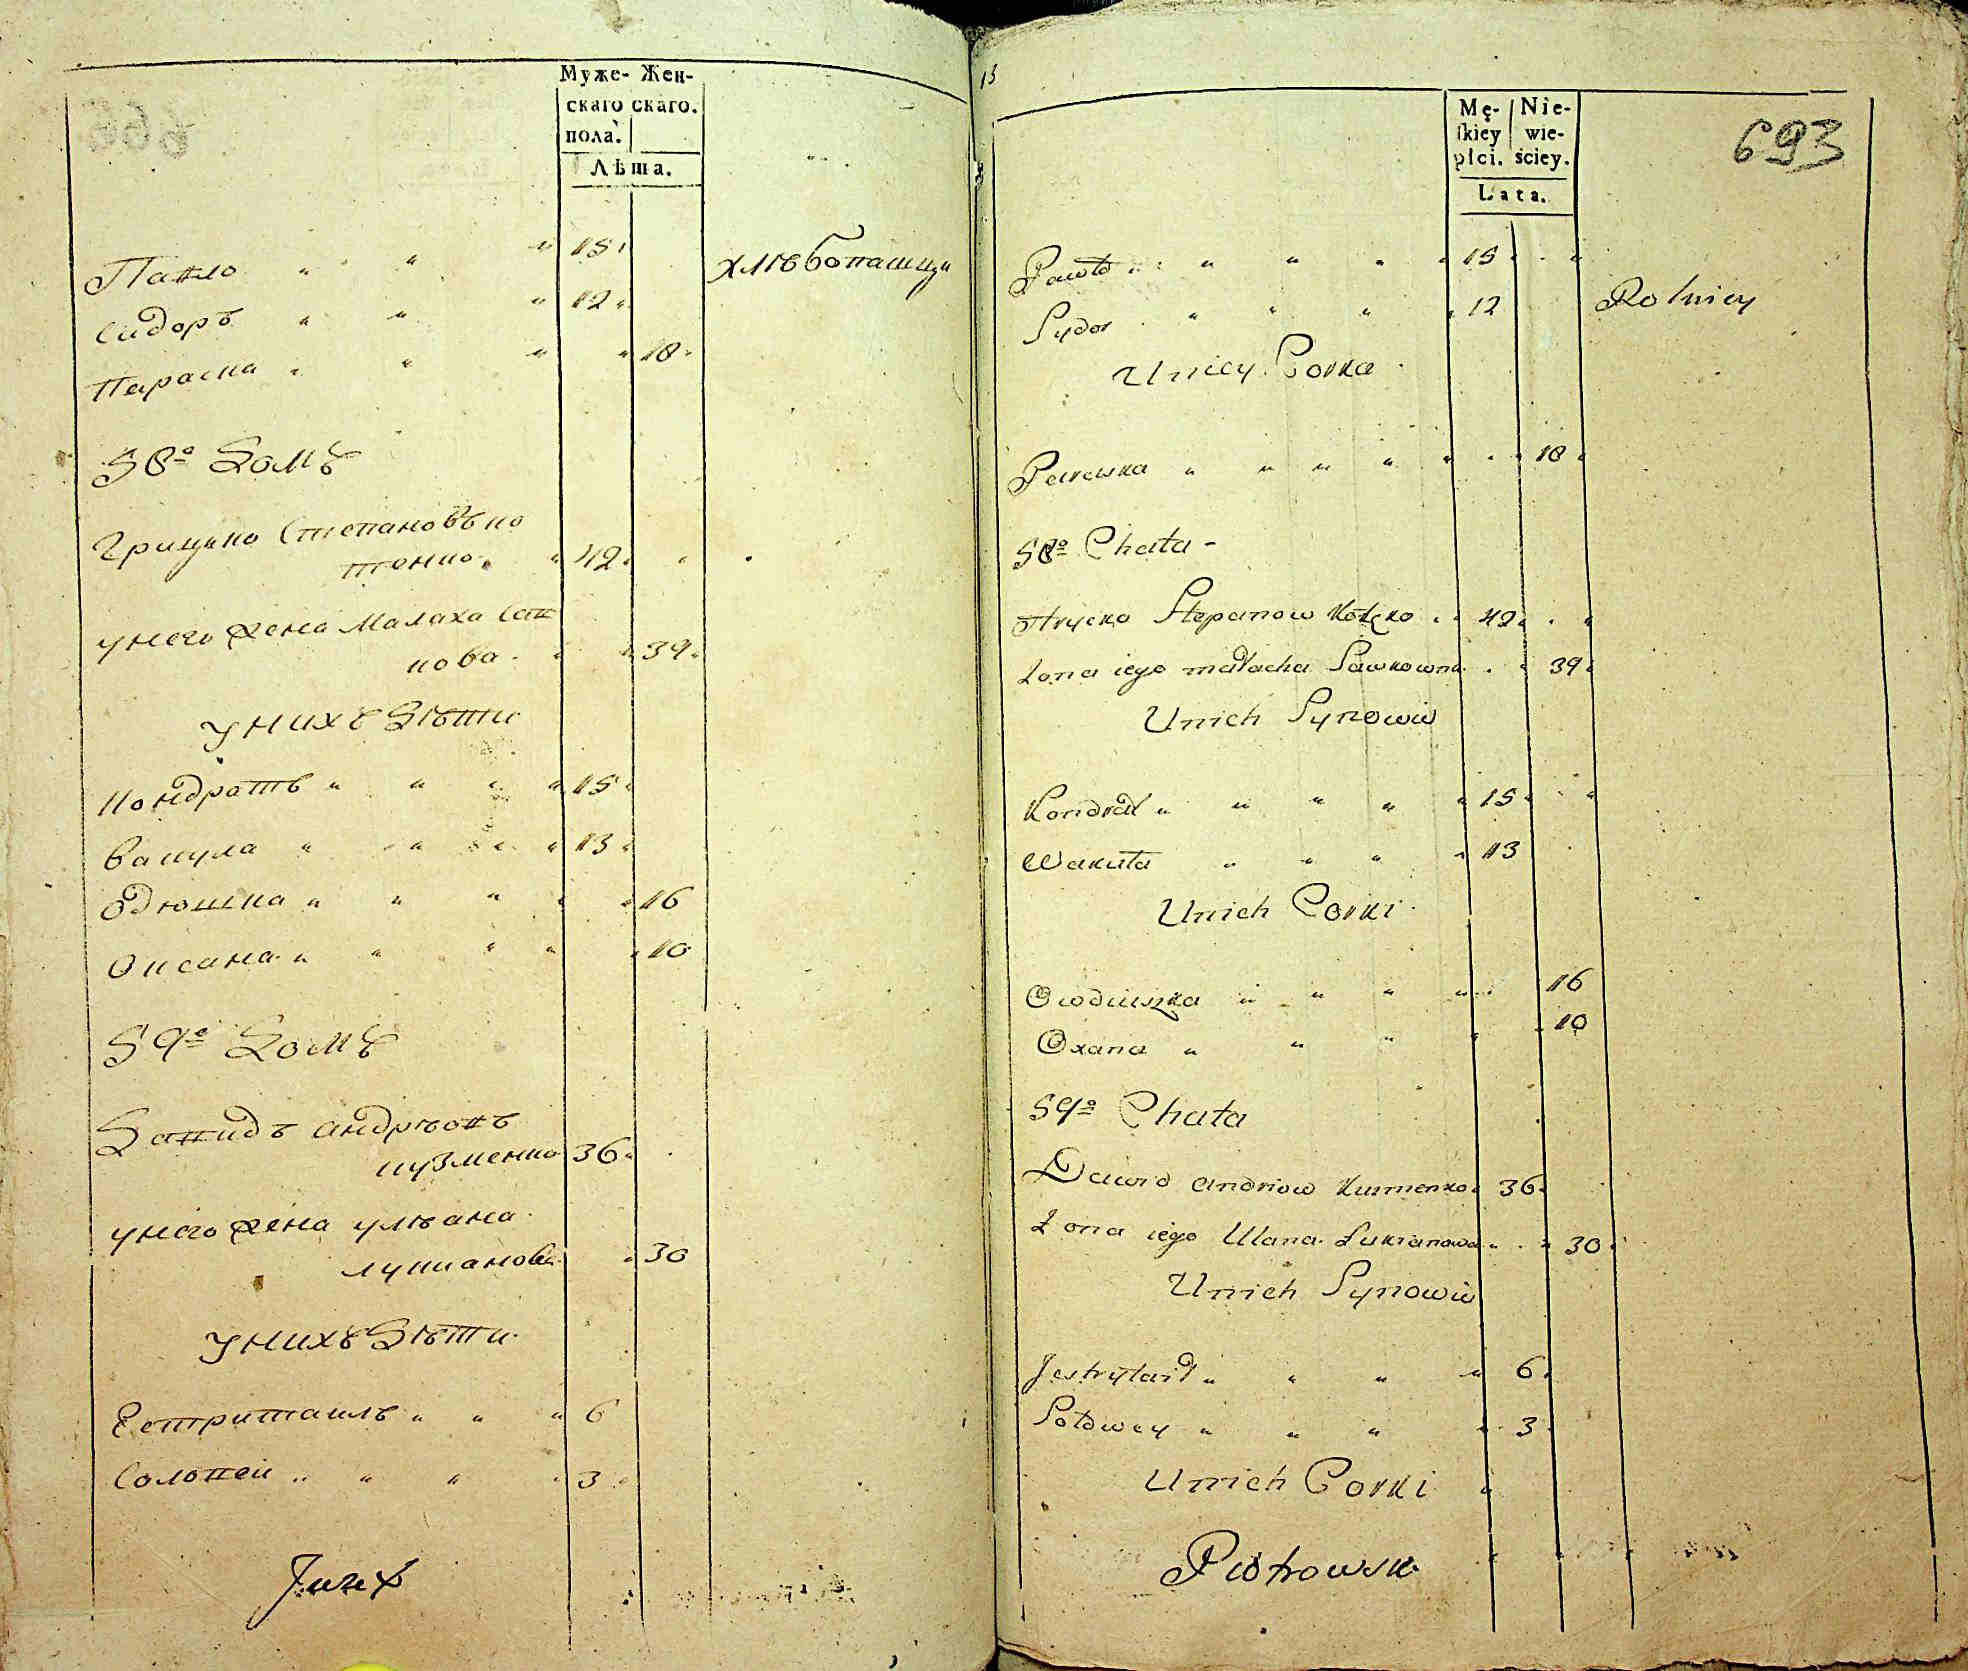 Муже- Жен-
скаго скаго.
пола.
Лѣта.
Павло " " " 15 хлѣбопашци
Сидоръ " " " 12
Параска " " " " 18
58º Домъ
Грицко Степановъ ко
тенко 42
унего жена Малаха Сав
кова 39
унихъ Дѣти
Кондратъ " " " " 15
Вакула " " " " 13
Одюшка " " " " 16
Оксана " " " " 10
59º Домъ
Давидъ андрѣовъ
кузменко 36
унего жена улѣана
лукианова 30
унихъ Дѣти
Естриташъ " " " 6
Соловей " " " 3
13
693
Mę- Nie-
skiey wie-
płci. ściey.
Lata.
Pawło " " " " 15 Rolnicy
Sydor " " " " 12
Unich Corka
Paraska " " " " 18
58º Chata
Hrycko Stepanow Kotcko 42
Żona iego małacha Sawkowna 39
Unich Synowie
Kondrat " " " " 15
Wakuła " " " " 13
Unich Corki
Owdiuszka " " " " 16
Oxana " " " " 10
59º Chata
Dawid andriow Kuzmenko 36
Żona iego Ulana Łukianowa 30
Unich Synowie
" " " 6
Sołowey " " " 3
Unich Corki
Piotrowsk